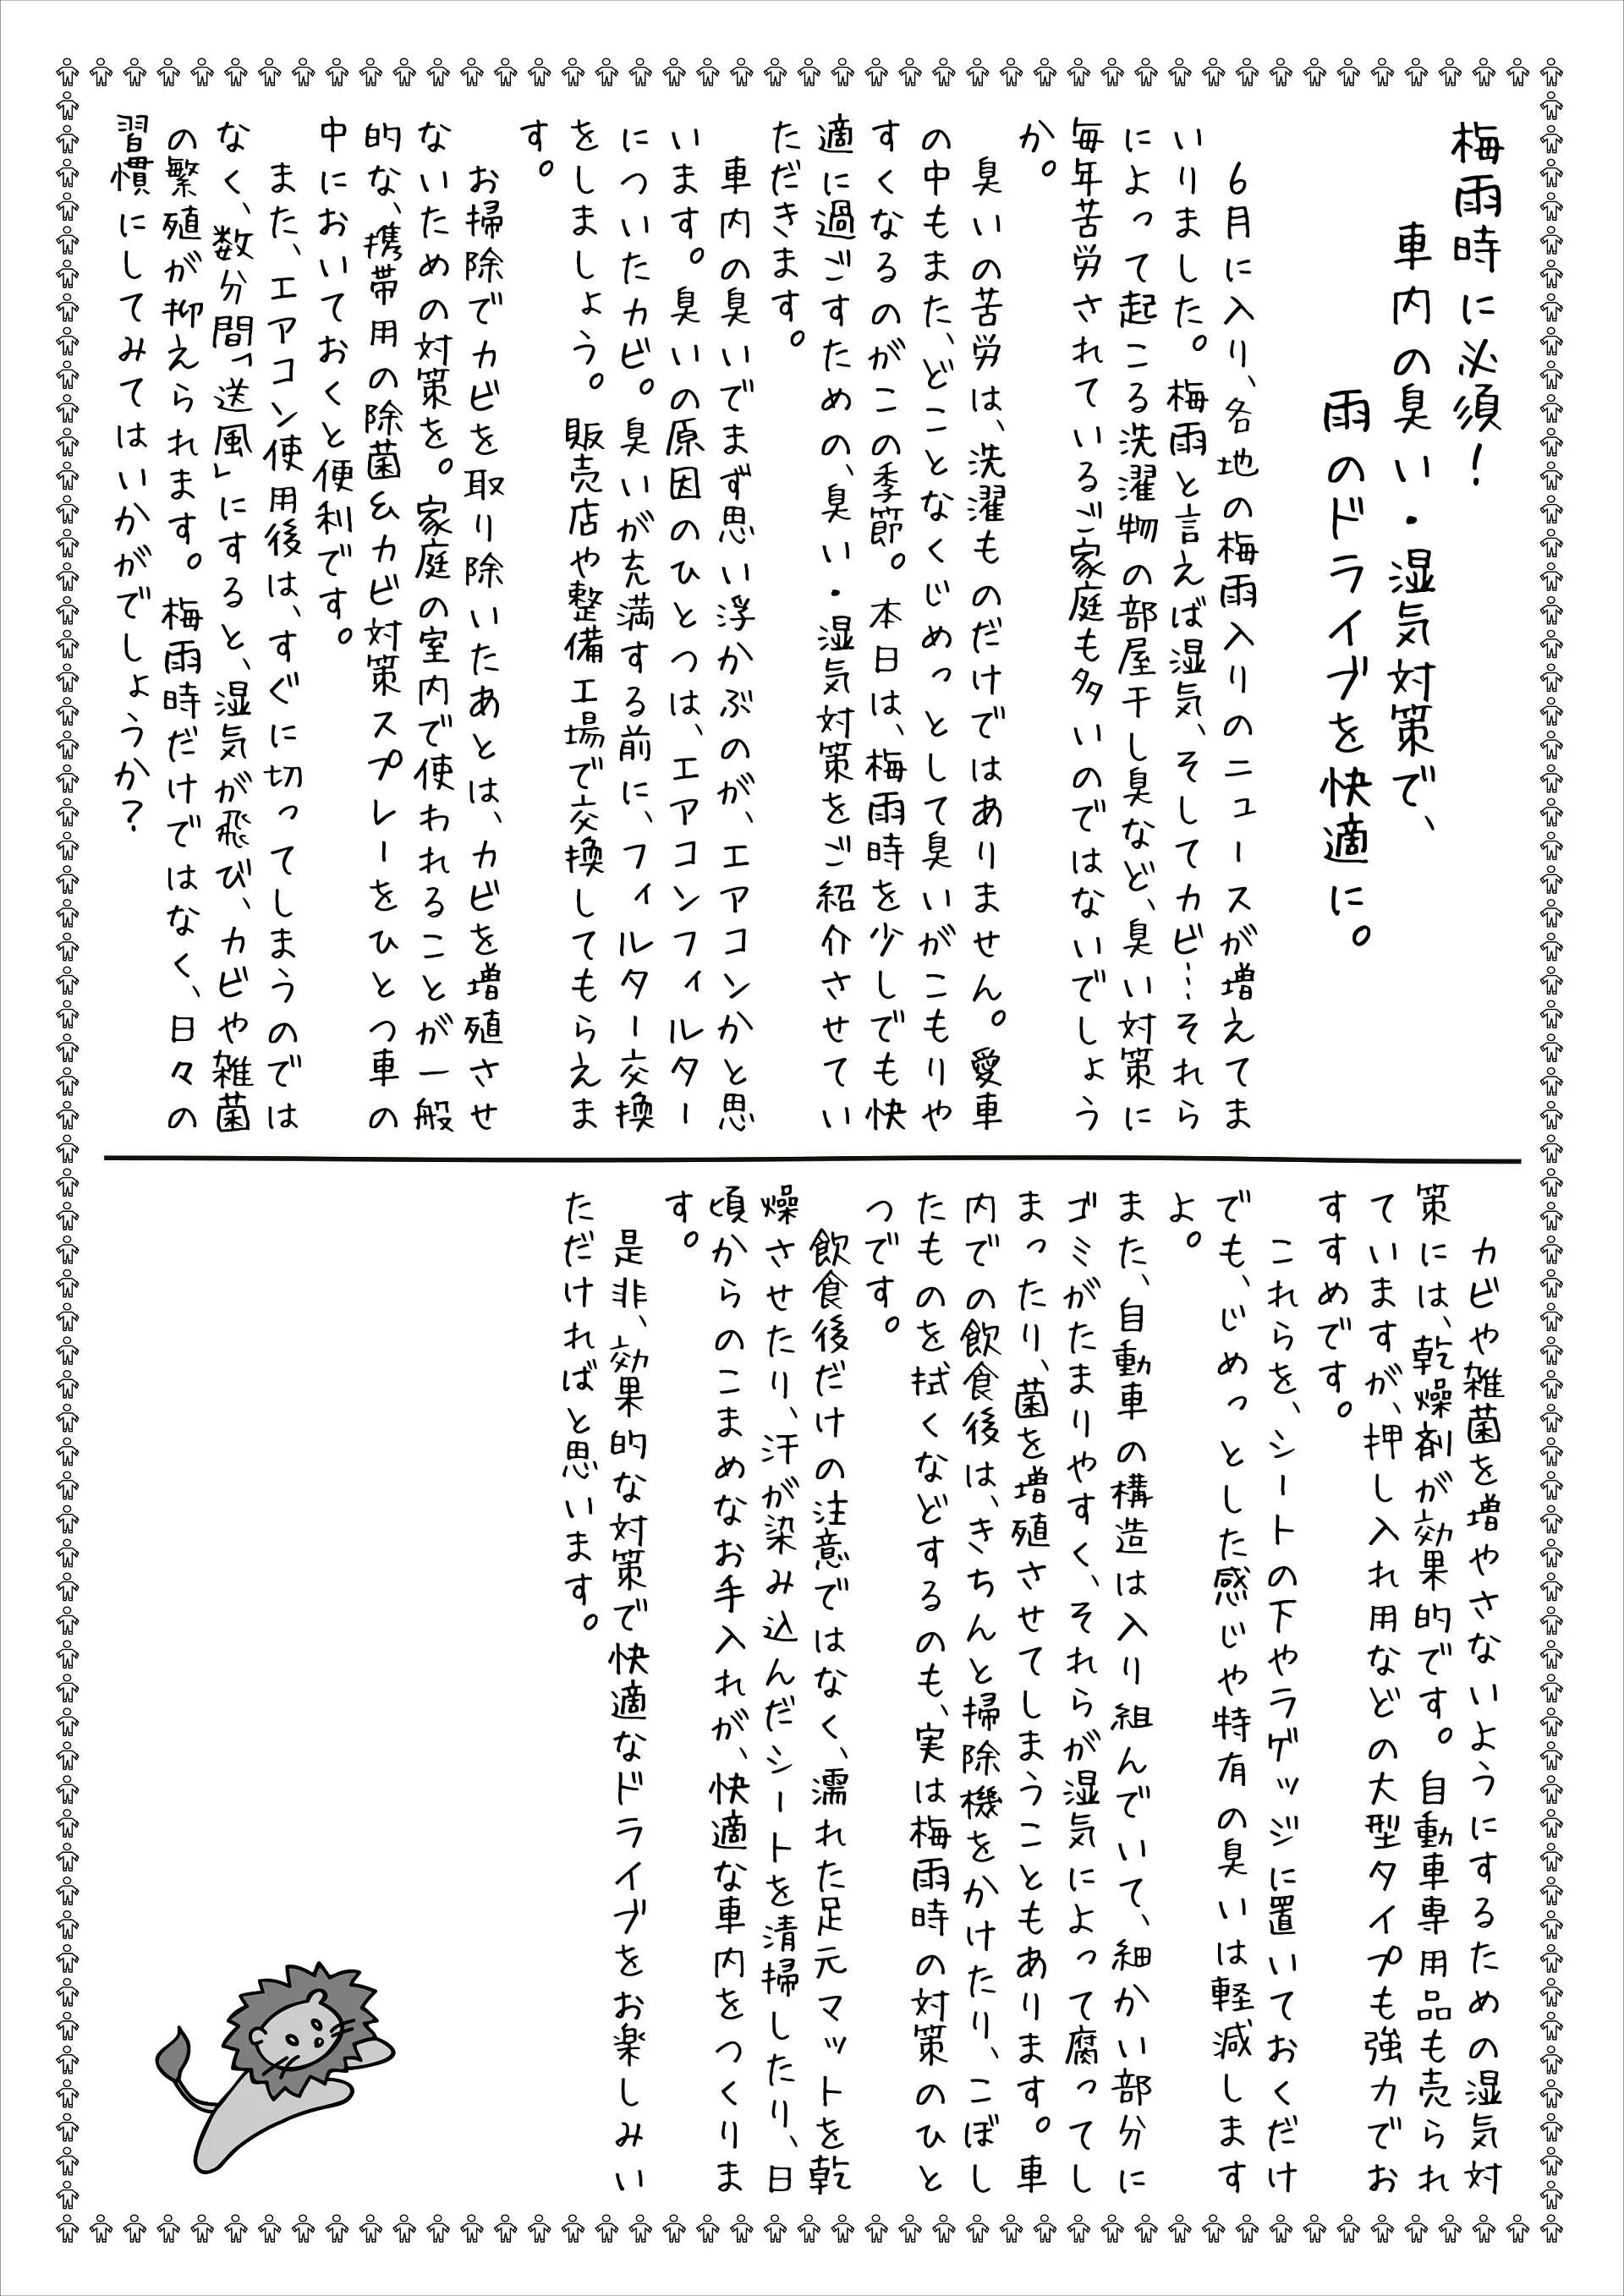 梅雨時に必須！
車内の臭い・湿気対策で、
雨のドライブを快適に。
６月に入り、各地の梅雨入りのニュースが増えてま
いりました。梅雨と言えば湿気、そしてカビ…それら
によって起こる洗濯物の部屋干し臭など、臭い対策に
毎年苦労されているご家庭も多いのではないでしょう
か。
臭いの苦労は、洗濯ものだけではありません。愛車
の中もまた、どことなくじめっとして臭いがこもりや
すくなるのがこの季節。本日は、梅雨時を少しでも快
適に過ごすための、臭い・湿気対策をご紹介させてい
ただきます。
車内の臭いでまず思い浮かぶのが、エアコンかと思
います。臭いの原因のひとつは、エアコンフィルター
についたカビ。臭いが充満する前に、フィルター交換
をしましょう。販売店や整備工場で交換してもらえま
す。
お掃除でカビを取り除いたあとは、カビを増殖させ
ないための対策を。家庭の室内で使われることが一般
的な、携帯用の除菌&カビ対策スプレーをひとつ車の
中においておくと便利です。
また、エアコン使用後は、すぐに切ってしまうのでは
なく、数分間「送風」にすると、湿気が飛び、カビや雑菌
の繁殖が抑えられます。梅雨時だけではなく、日々の
習慣にしてみてはいかがでしょうか？
カビや雑菌を増やさないようにするための湿気対
策には、乾燥剤が効果的です。自動車専用品も売られ
ていますが、押し入れ用などの大型タイプも強力でお
すすめです。
これらを、シートの下やラゲッジに置いておくだけ
でも、じめっとした感じや特有の臭いは軽減します
よ。
また、自動車の構造は入り組んでいて、細かい部分に
ゴミがたまりやすく、それらが湿気によって腐ってし
まったり、菌を増殖させてしまうこともあります。車
内での飲食後は、きちんと掃除機をかけたり、こぼし
たものを拭くなどするのも、実は梅雨時の対策のひと
つです。
飲食後だけの注意ではなく、濡れた足元マットを乾
燥させたり、汗が染み込んだシートを清掃したり、日
頃からのこまめなお手入れが、快適な車内をつくりま
す。
是非、効果的な対策で快適なドライブをお楽しみい
ただければと思います。